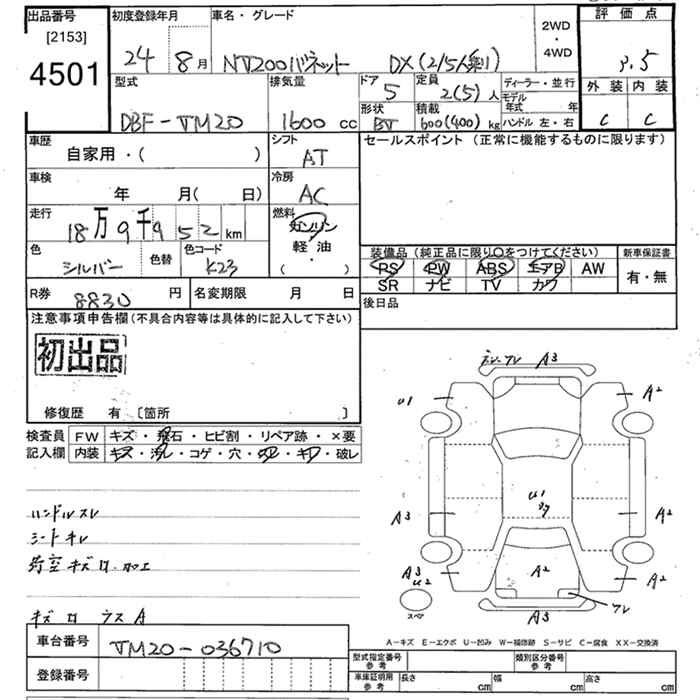 出品番号 初度登録年月 車名・グレード 2WD・4WD 評価点
[2153]
4501 24 8月 NV200バネット DX(2/5人乗り) 3.5
型式 排気量 ドア 定員 ディーラー・並行 外装 内装
5 2(5)人 モデル年式 年
DBF-VM20 1600cc 形状 積載 ハンドル 左・右 C C
BV 600(400)kg
車歴 シフト セールスポイント (正常に機能するものに限ります)
自家用・( ) AT
車検 冷房
年 月( 日) AC
走行 燃料
18万9千952km ガソリン
色 色替 色コード 軽油
シルバー K23 ・( )
装備品(純正品に限り〇をつけてください) 新車保証書
PS PW ABS エアB AW 有・無
SR ナビ TV カワ
R券 8830円 名変期限 月 日 後日品
注意事項申告欄(不具合内容等は具体的に記入して下さい)
初出品
修復歴 有 [箇所 ]
検査員 FW キズ・飛石・ヒビ割・リペア跡・×要
記入欄 内装 キズ・汚レ・コゲ・穴・キレ・破レ
ハンドルスレ
シートキレ
荷室キズ
キズ ウス A
A3
U1 A2
U1
A3 A2
A3 U2 A2 A2
スペア A3 ワレ
A-キズ E-エクボ U-凹み W-補修跡 S-サビ C-腐食 XX-交換済
車台番号 VM20-036710
登録番号
型式指定番号 参考 類別区分番号 参考
車庫証明用 参考 長さ cm 幅 cm 高さ cm